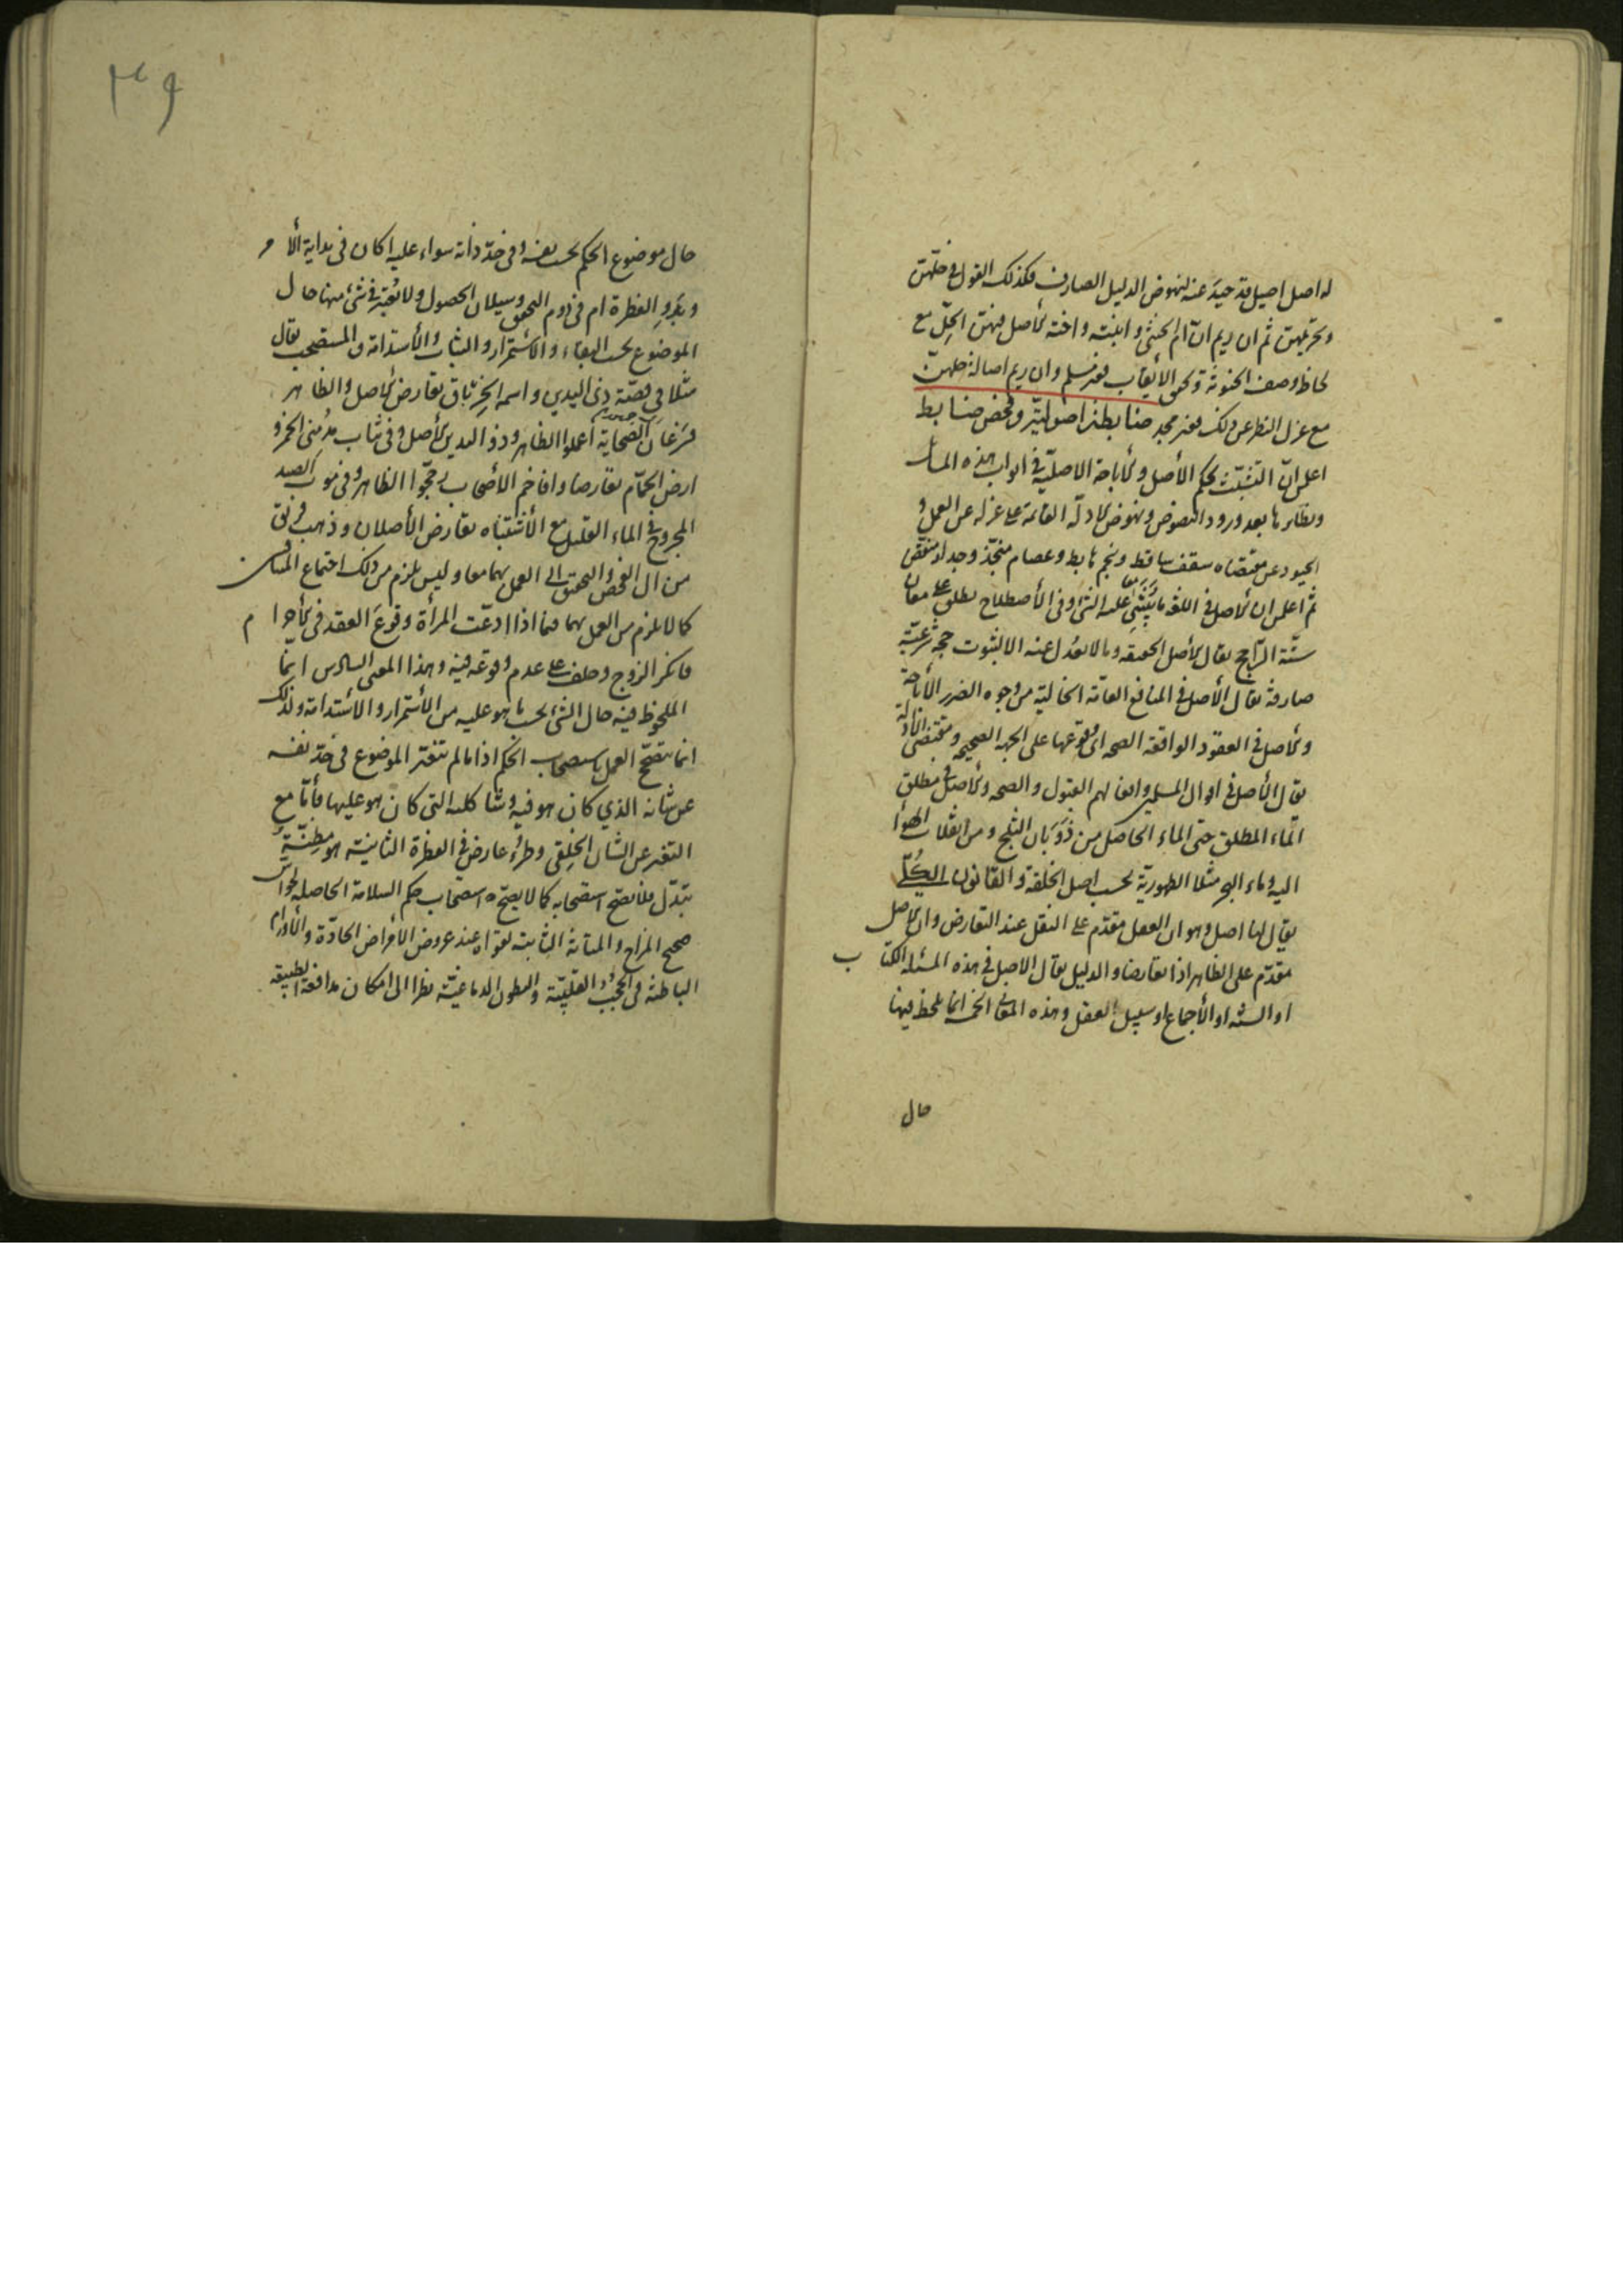 له اصل اصيل قد حيد عنه لنهوض الدليل الصارف فكذلك القول في حلّهنّ
وتحريمهن ثم ان ريم انّ ام الخنثى و ابنته و اخته الأصل فيهن الحِلّ مع
لحاظ وصف الخنوثة ولحوق الأيقاب فغير مسلم وان ريم اصالة حلهنّ
مع عزل النظر عن ذلك فغير مجد
اعلمن انّ التشبّث بحكم الأصل والأباحة الاصليّة في ابواب هذه المسائل
ونظائرها بعد ورود النصوص ونهوض الادلّة القائمة على عزله عن العمل و
الحيود عن مقتضاه سقف ساقط ونجم هابط وعصام منجذّ وجدار منقضّ
ثم اعلمن ان الأصل في اللغة ما يبتنى عليه الشئ وفي الأصطلاح يطلق على معان
ستّة الرّاجح يقال الأصل الحقيقة وما لا يعدل عنه الا لثبوت حجة شرعيّة
صارفة يقال الأصل في المنافع العامّة الخالية من وجوه الضرر الأباحة
والأصل في العقود الواقعة الصحة اى وقوعها على الجهة الصحيحة ومقتضى الأدلة
يقال الأصل في اموال المسلمين وافعالهم القبول والصحة والأصل في مطلق
الماء المطلق حتى الماء الحاصل من ذَوَبان الثلج ومن انقلاب الهواء
اليه وماء البحر مثلا الطهوريّة بحسب اصل الخلقة والقانون الكُلّي
يقال لنا اصل وهو ان العقل مقدّم على النقل عند التعارض وان الأصل
مقدّم على الظاهر اذا تعارضا والدليل يقال الاصل في هذه المسئلة الكتاب
او السنّة او الأجماع او سبيل العقل وهذه المعاني الخمسة انما يلحظ فيها
حال
٣٩
حال موضوع الحكم بحسب نفسه وفي حدّ ذاته سواء عليه اكان في بداية الأمر
وبَدوِ الفطرة ام في دوم التحقق وسيلان الحصول ولا يُعتبر في شئ منها حال
الموضوع بحسب البقاء والأستمرار والثبات والأستدامة والمستصحب يقال
مثلا في قصّة ذى اليدين واسمه الخِرباق تعارض الأصل والظاهر
فسَرَعان الصّحابة أعملوا الظاهر وذو اليدين الأصل وفي ثياب مُدمنى الخمر و
ارض الحمّام تعارضا وافاخم الأصحاب رجّحوا الظاهر وفي موت الصيد
المجروح في الماء القليل مع الأشتباه تعارض الأصلان وذهب فريق
من ال الفحص والتحقيق الى العمل بهما معا وليس يلزم من ذلك اجتماع المتنافيين
كما لا يلزم من العمل بهما فيما اذا ادعّت المرأة وقوعَ العقد في الأحرام
فانكر الزوج وحلف على عدم وقوعه فيه وهذا المعنى السادس انما
الملحوظ فيه حال الشئ بحسب ما هو عليه من الأستمرار والأستدامة ولذلك
انما يتصحّح العمل باستصحاب الحكم اذا ما لم يتغير الموضوع في حدّ نفسه
عن شانه الذي كان هو فيه وشاكلته التى كان هو عليها فأمّا مع
التغير عن الشأن الخِلقى وطروّ عارض في الفطرة الثانية هو مظِنّةُ
تبدّل فلا يصح استصحابه كما لا يصح استصحاب حكم السلامة الحاصلة لحواسّ
صحيح المزاج والمتانة الثابتة لقواه عند عروض الأمراض الحادّة والأورام
الباطنة في الحُجُب القلبيّة والبطون الدماغيّة نظرا الى امكان مدافعة الطبيعة